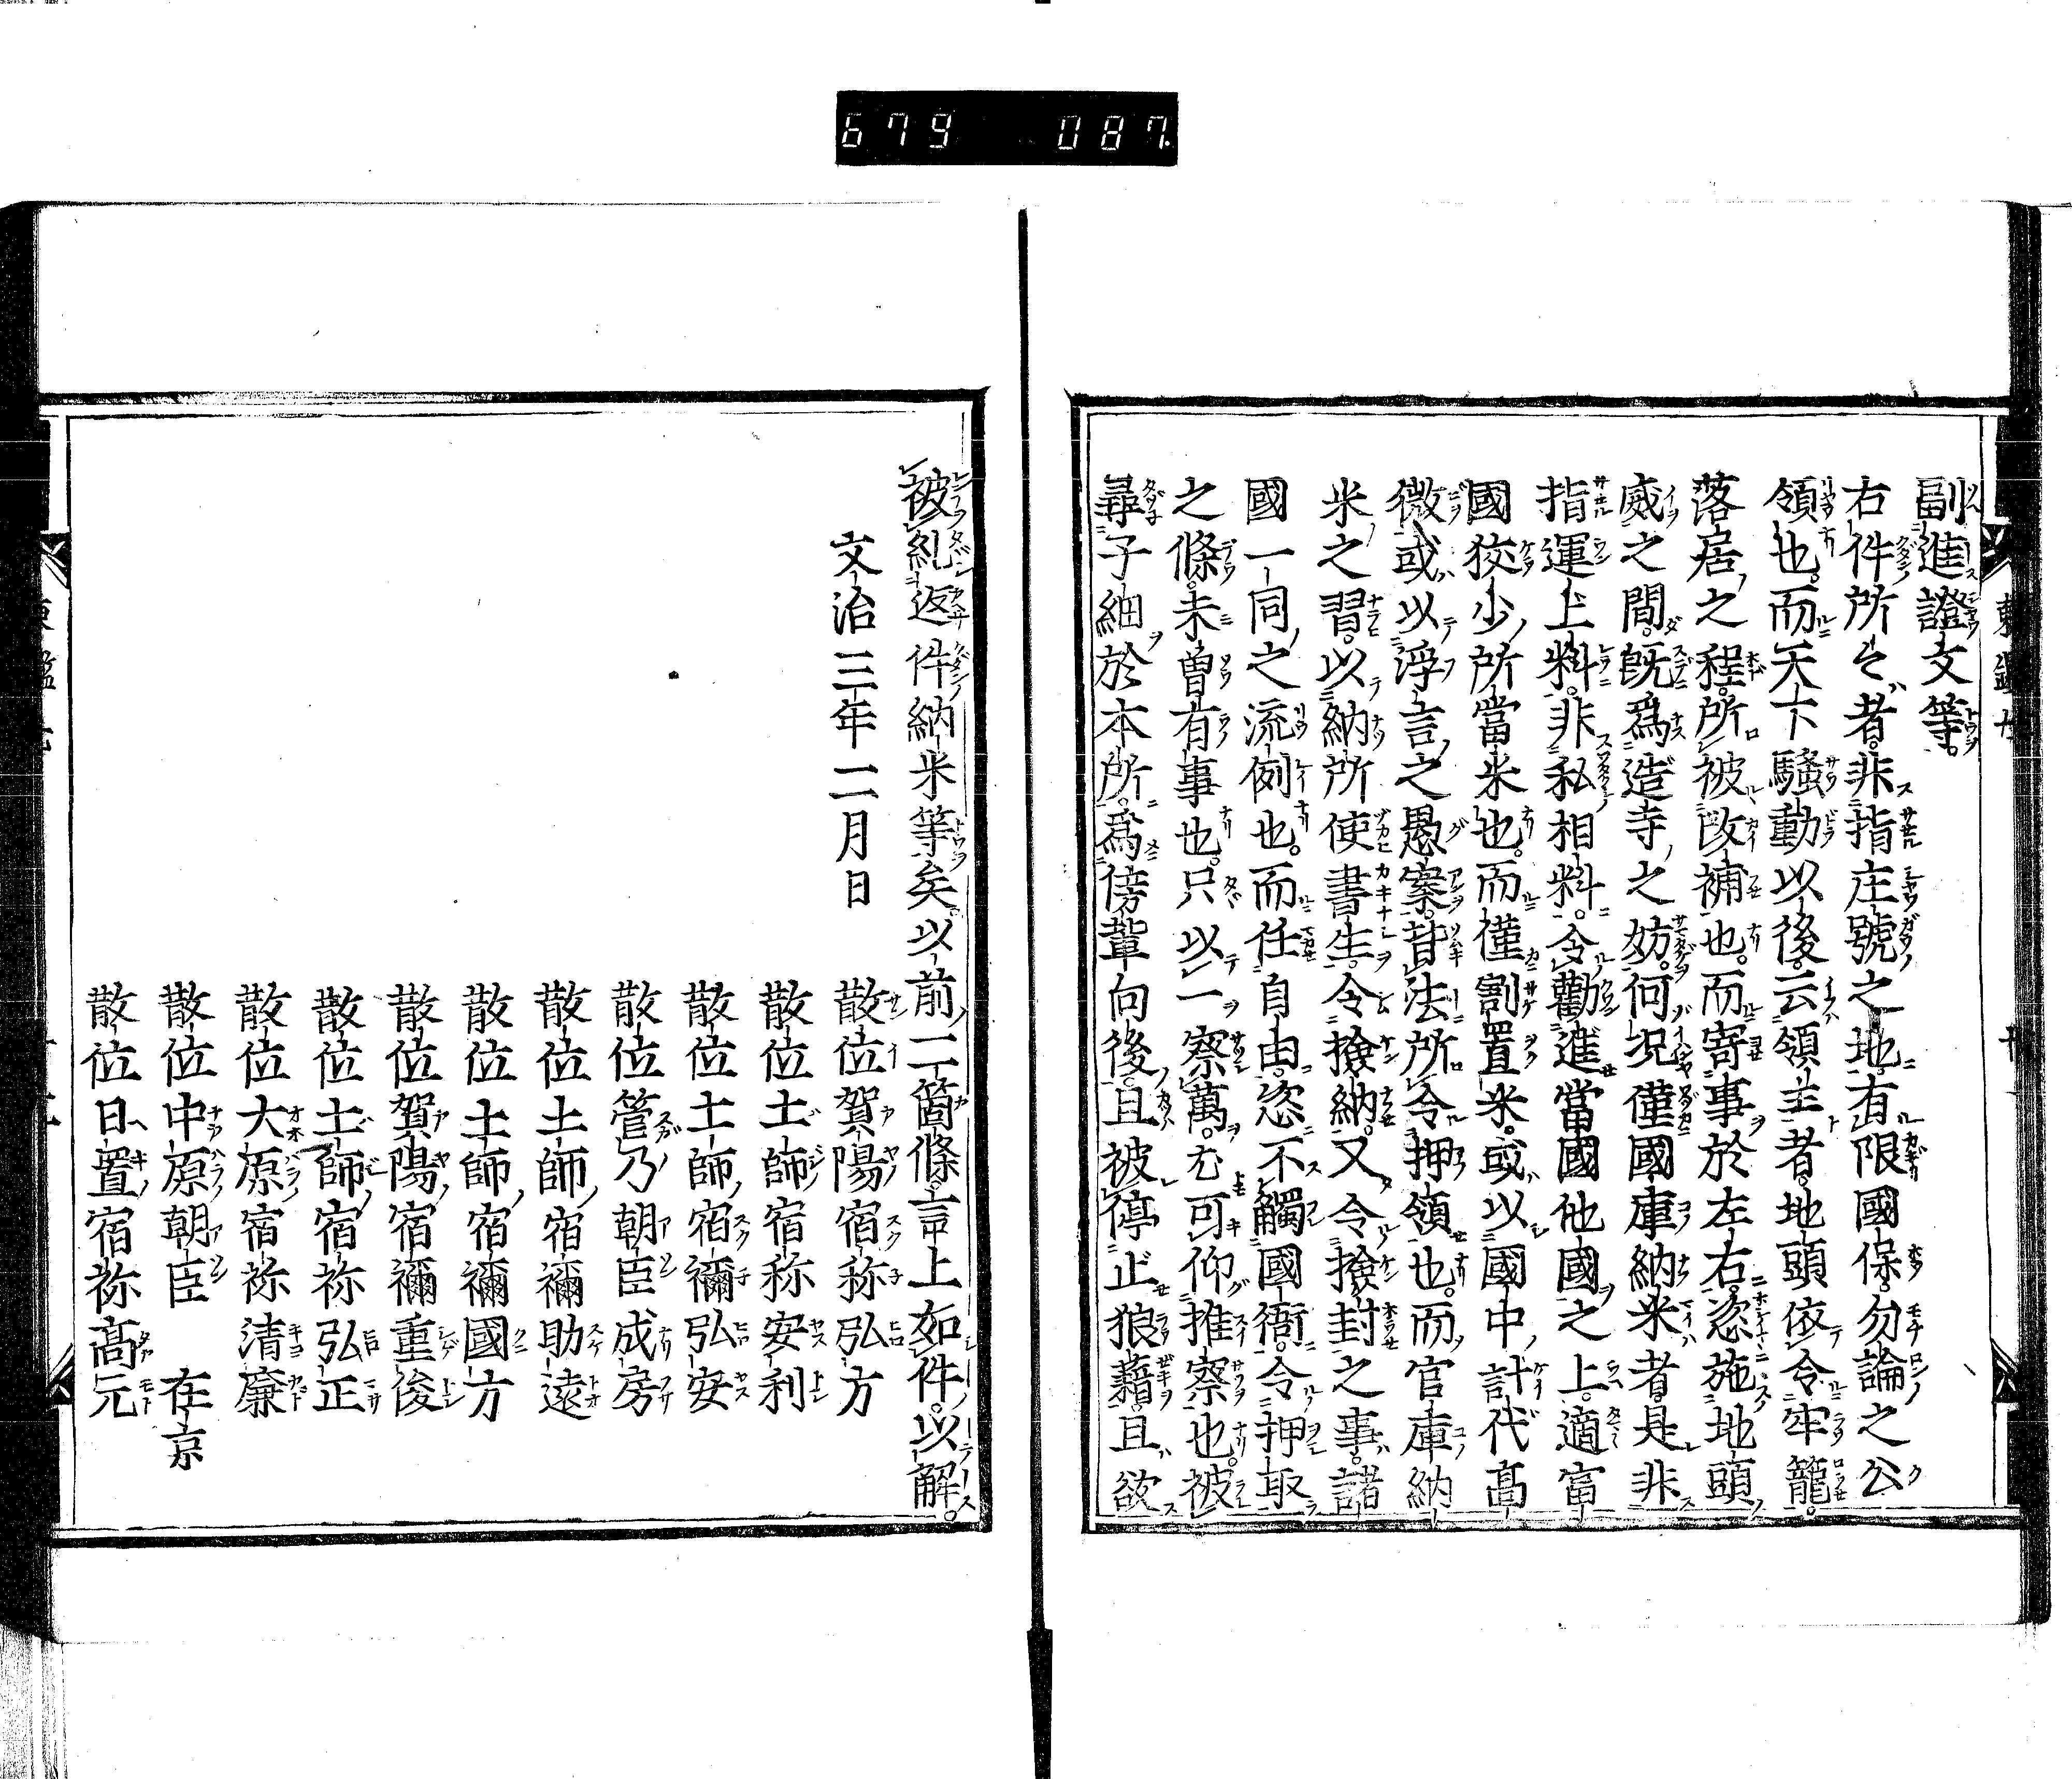 679 087
副進證文等。
右件所々者。非指庄號之地。有限國保。勿論之公
領也。而天下騷動以後。云領主者。地頭依令牢籠。
落居之程。所被改補也。而寄事於左右。恣施地頭
威之間。既爲造寺之妨。何況僅國庫納米者。是非
指運上料。非私相料。令勸進當國他國之上。適當
國狡少所當米也。而僅割置米。或以國中計代高
微。或以浮言之愚案。背法所令押領也。而官庫納
米之習。以納所使書生。令撿納。又令撿封之事。諸
國一同之流例也。而任自由。恣不觸國衙。令押取
之條。未曾有事也。只以一察萬。尤可仰推察也。被
尋子細於本所。爲傍輩向後。且被停止狼藉。且欲
被糺返件納米等矣。以前二箇條。言上如件。以解。
文治三年二月日
散位賀陽宿祢弘方
散位土師宿祢安利
散位土師宿禰弘安
散位管乃朝臣成房
散位土師宿禰助遠
散位土師宿禰國方
散位賀陽宿禰重俊
散位土師宿祢弘正
散位大原宿祢清廉
散位中原朝臣 在京
散位日置宿祢高元